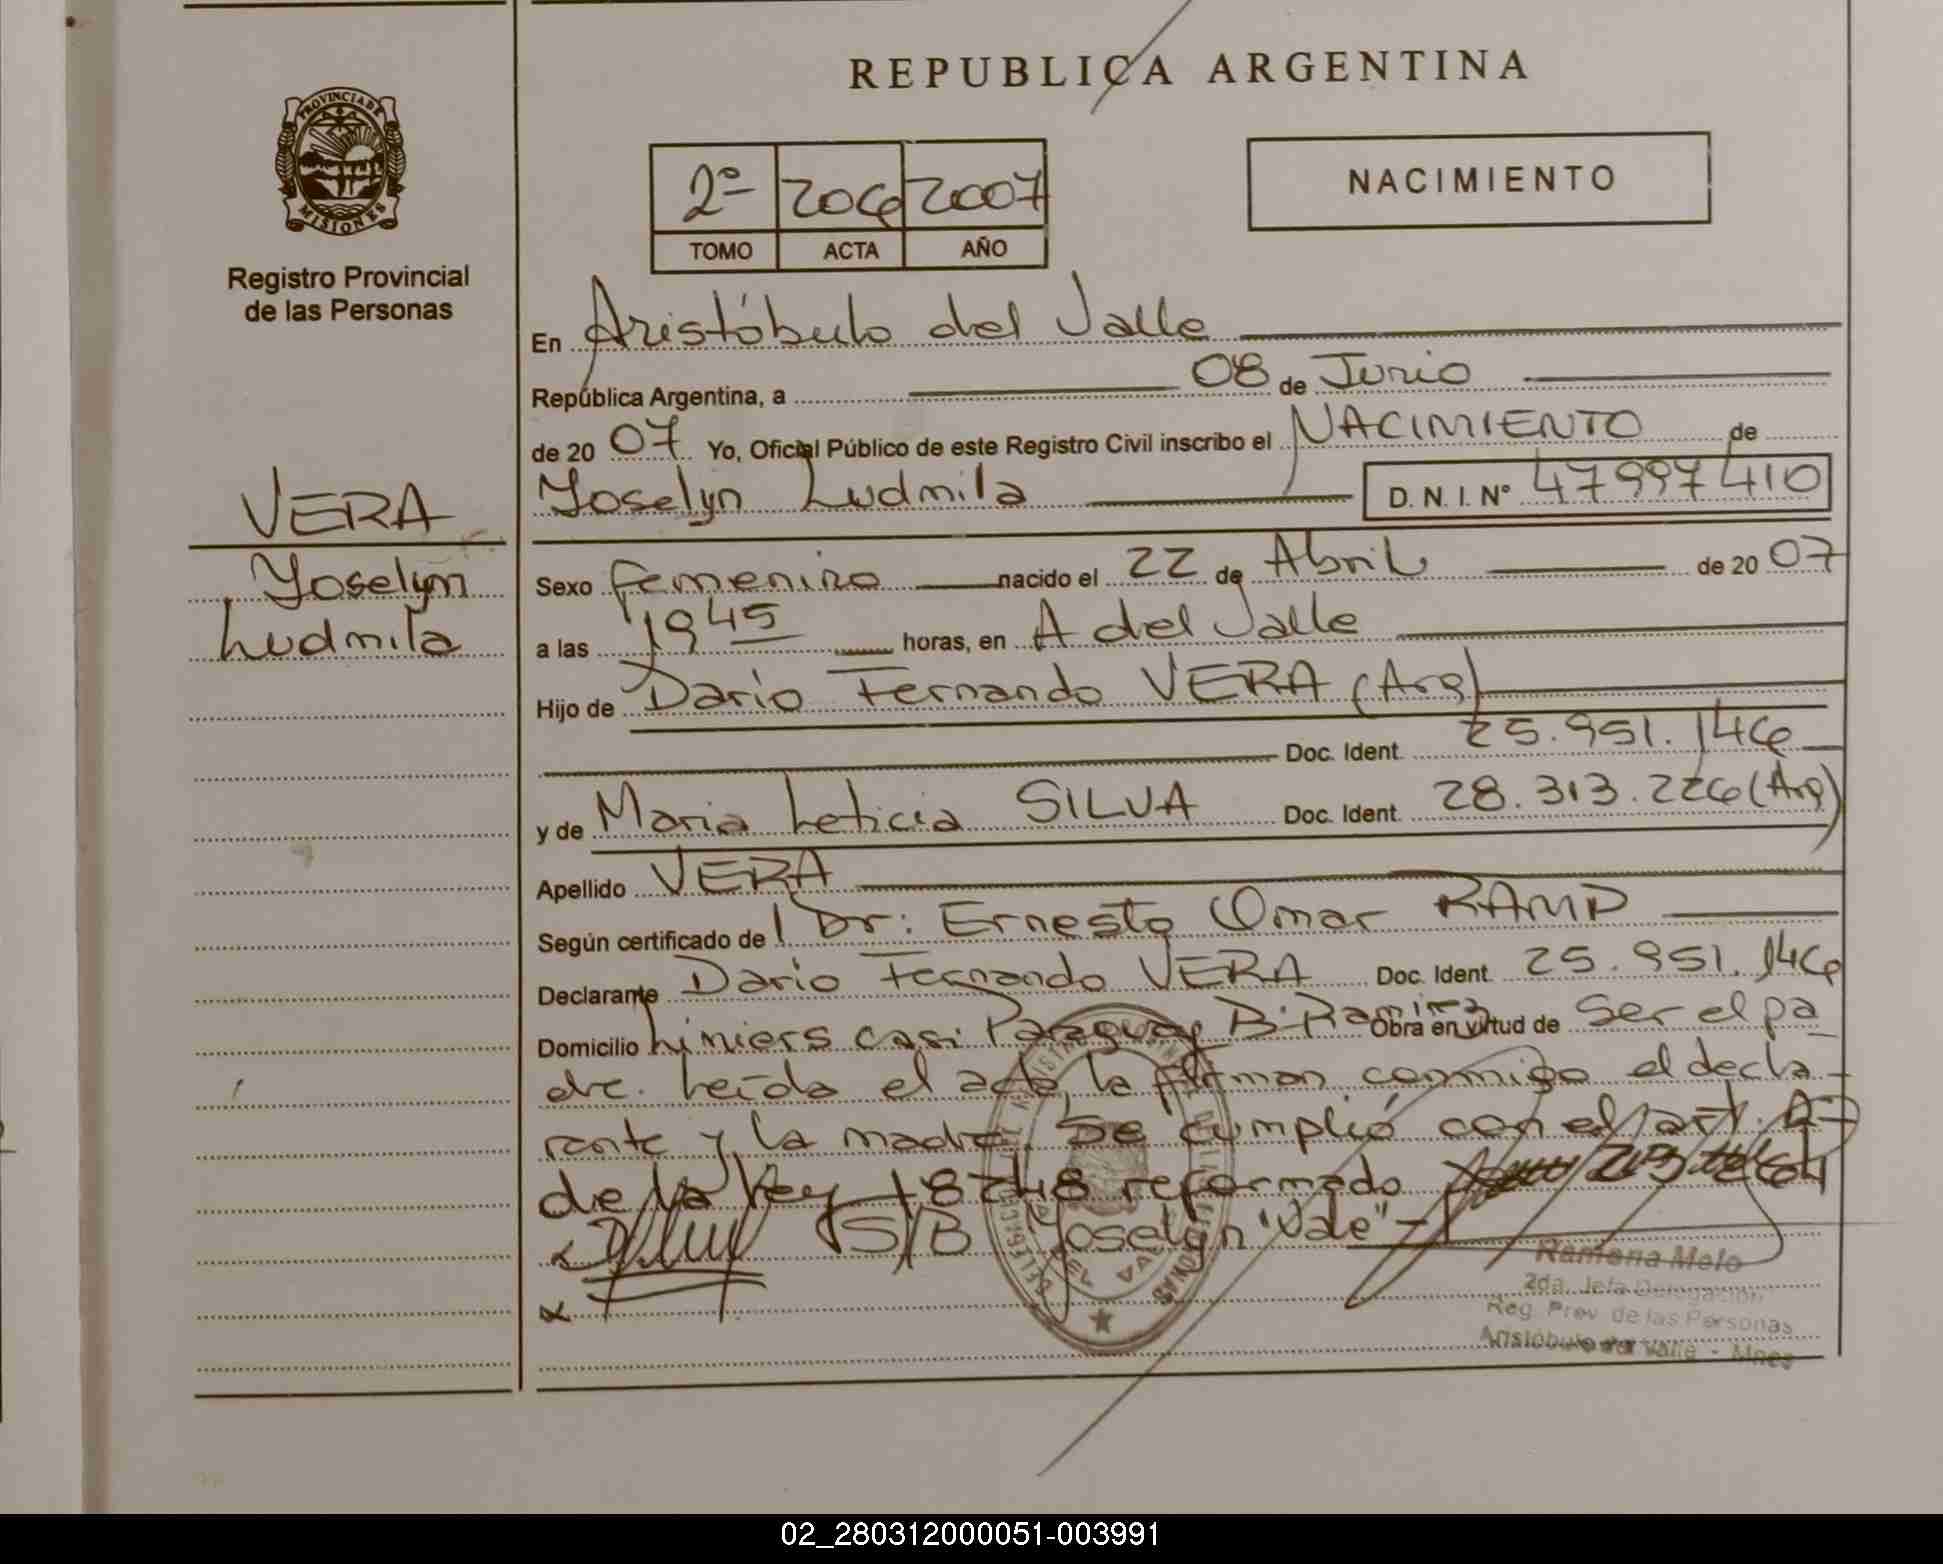 REPUBLICA ARGENTINA
PROVINCIA DE
MISIONES
Registro Provincial
de las Personas
2º 206 2007
TOMO ACTA AÑO
NACIMIENTO
En Aristóbulo del Valle
República Argentina, a 08 de Junio
de 2007 Yo, Oficial Público de este Registro Civil inscribo el NACIMIENTO de
Yoselyn Ludmila D.N.I.Nº 47997410
VERA
Yoselyn
Ludmila
Sexo femenino nacido el 22 de Abril de 2007
a las 19 45 horas, en A del Valle
Hijo de Dario Fernando VERA (Arg)
Doc. Ident. 25.951.146
y de Maria Leticia SILVA Doc. Ident. 28.313.226 (Arg)
Apellido VERA
Según certificado de Dr: Ernesto Omar RAMP
Declarante Dario Fernando VERA Doc. Ident. 25.951.146
Domicilio Liniers casi Paraguay B. Ramirez Obra en virtud de Ser el pa
dre. Leída el acta, la firman conmigo el decla-
rante y la madre. Se cumplió con el art.
de la Ley 18248 reformado
S/B Yoselyn "Vale"
Ramona Melo
2da. Jefa Delegación
Reg. Prov. de las Personas
Aristóbulo del Valle - Mnes
02_280312000051-003991